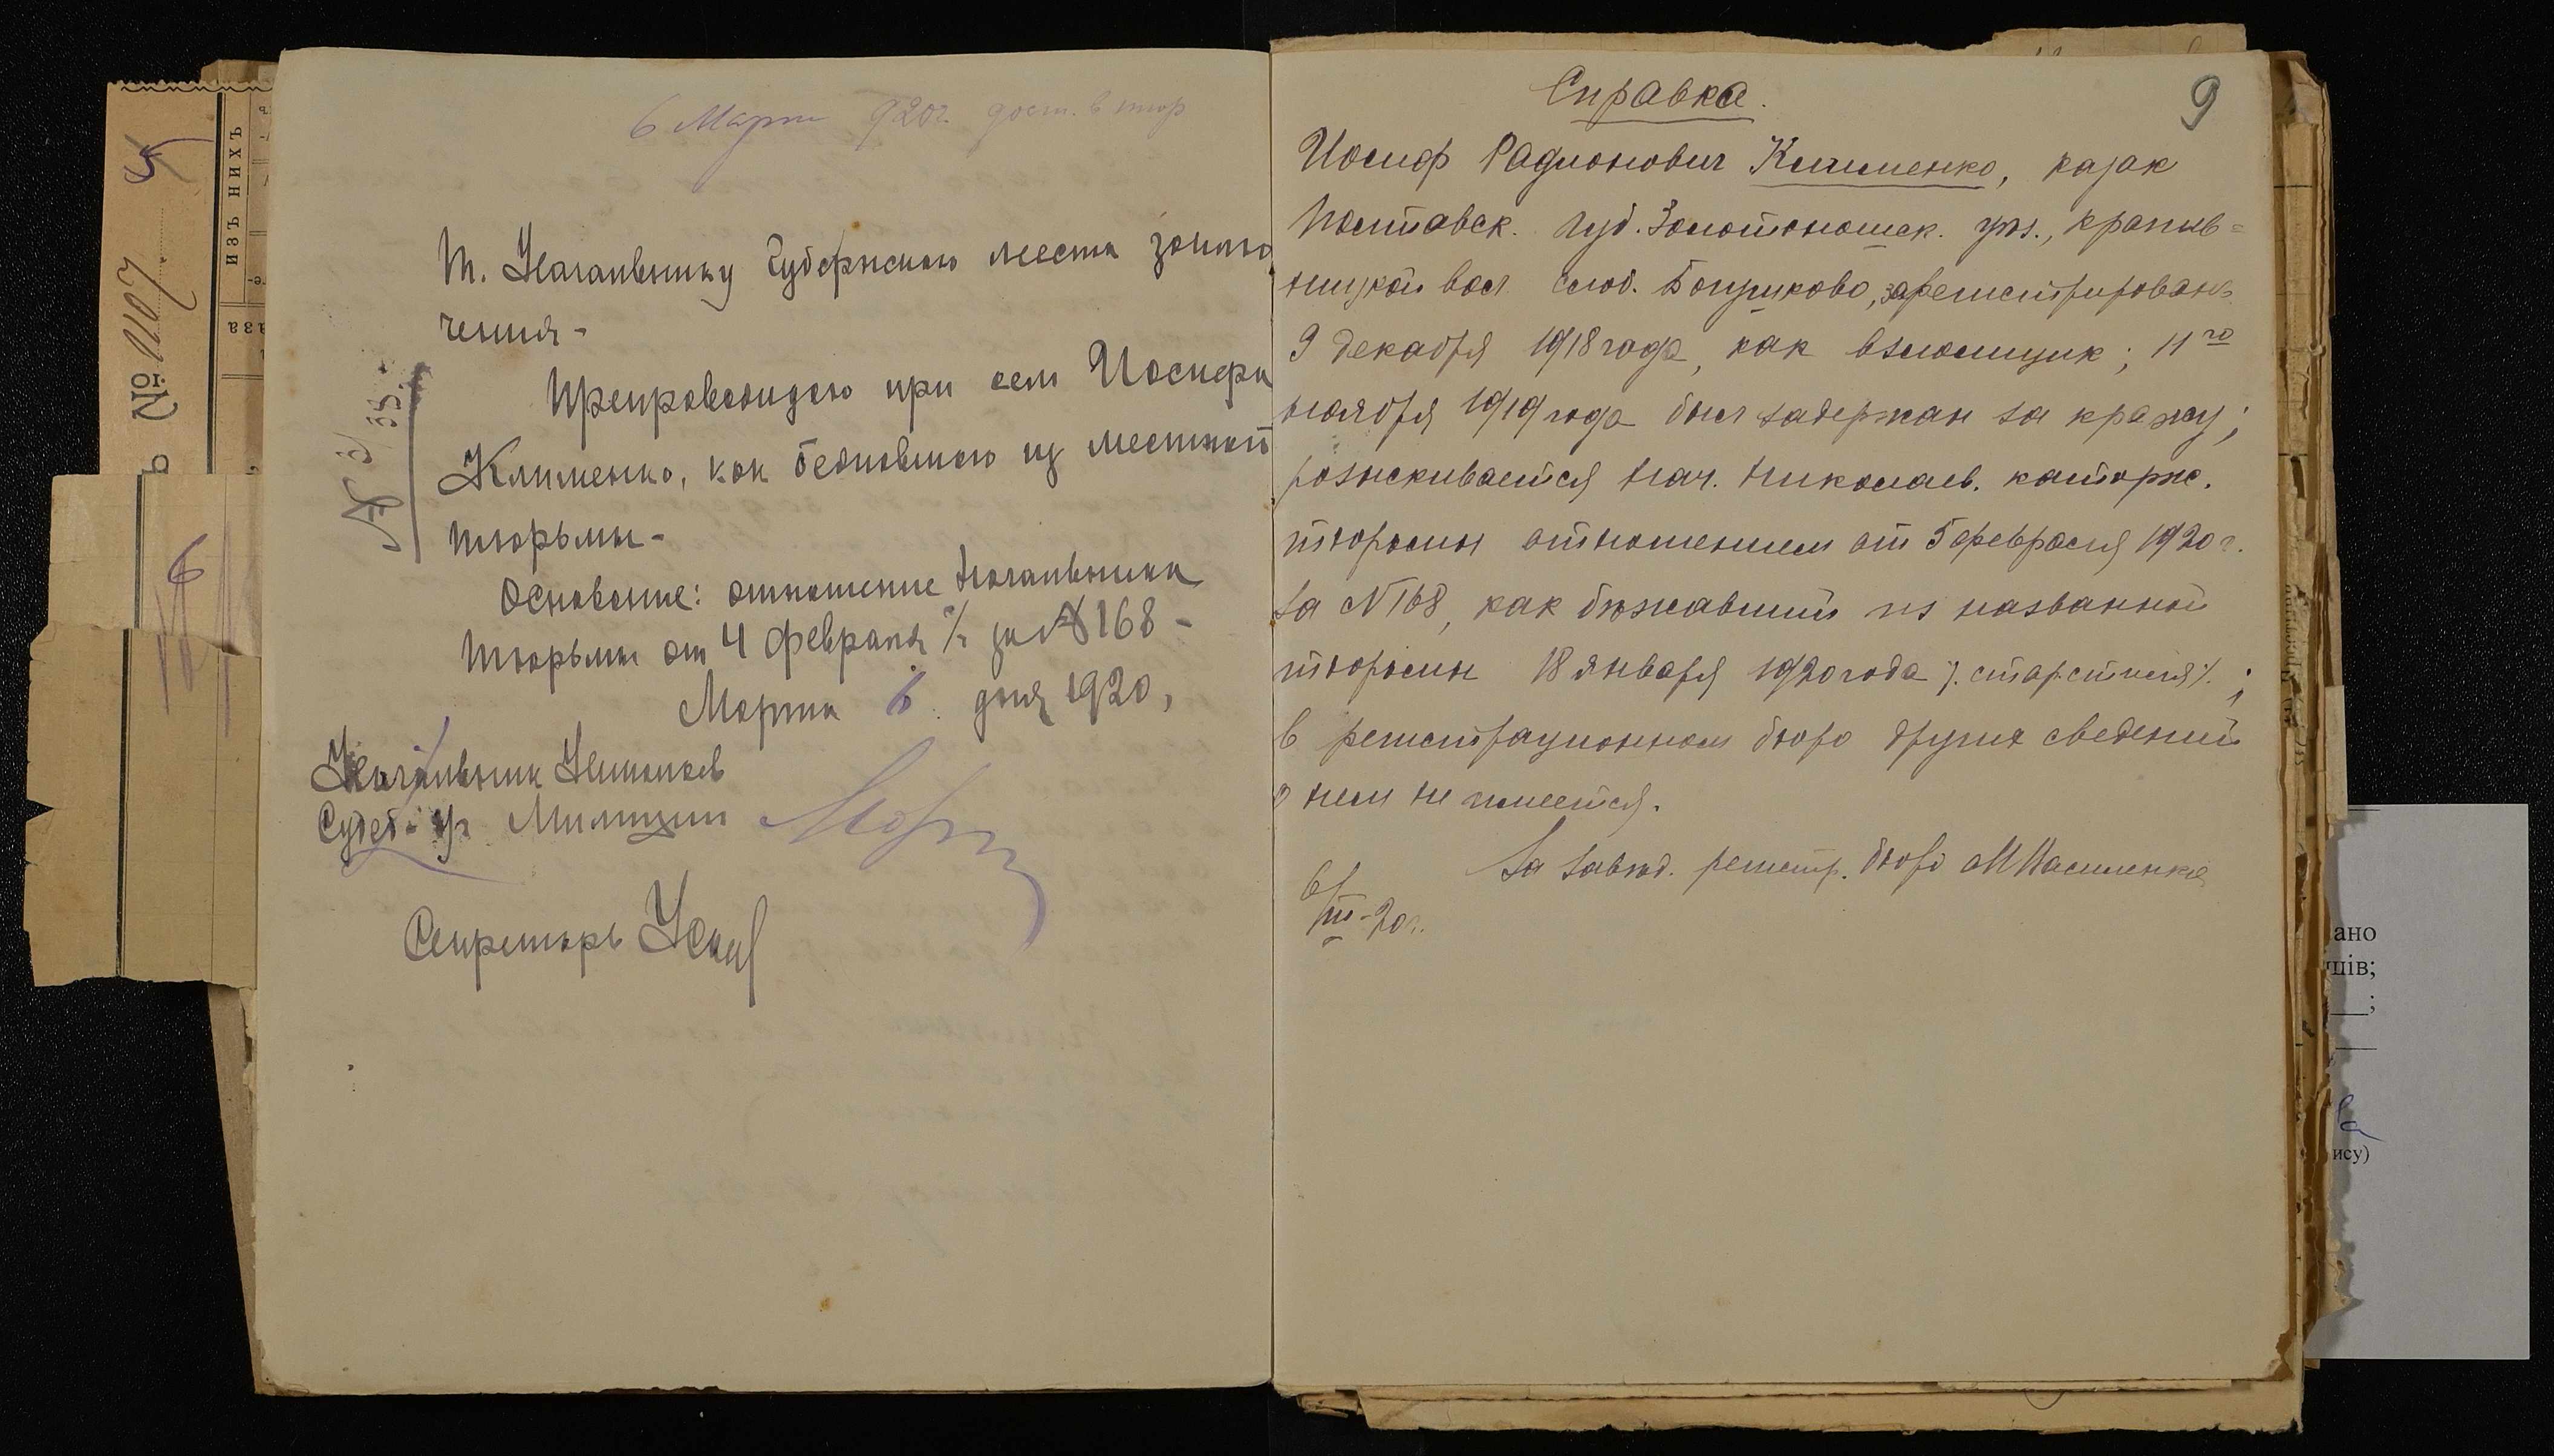 6 Марта 920 г. дост. в тюр
Т. Начальнику Губернского места заклю
чения-
Препровождаю при сем Иосифа
Клименко, как бежавшего из местной
тюрьмы-
Основание: отношение Начальника
тюрьмы от 4 февраля с/г за № 168-
Марта 6 дня 1920,
Начальник Николаев
Судеб-уг Милиции
Секретарь
Справка.
9
Иосиф Радионович Клименко, казак
Полтавск. губ. Золотоношск. уез., крапив=
ницкой вол слоб. Богуславово, зарегистрирован
9 декабря 1918 года, как взломщик; 11го
ноября 1919 года был задержан за кражу;
розыскивается нач. Николаев. каторж.
тюрьмы отношением от 5 февраля 1920 г.
за N 168, как бѣжавший из названной
тюрьмы 18 января 1920 года /. стар. стиля /. ;
в регистрационном бюро других сведений
о нем не имеется.
За завѣд. регистр. бюро
6/III-20 г.
ИЗЪ НИХЪ
№ 1107
6
ано
ису)